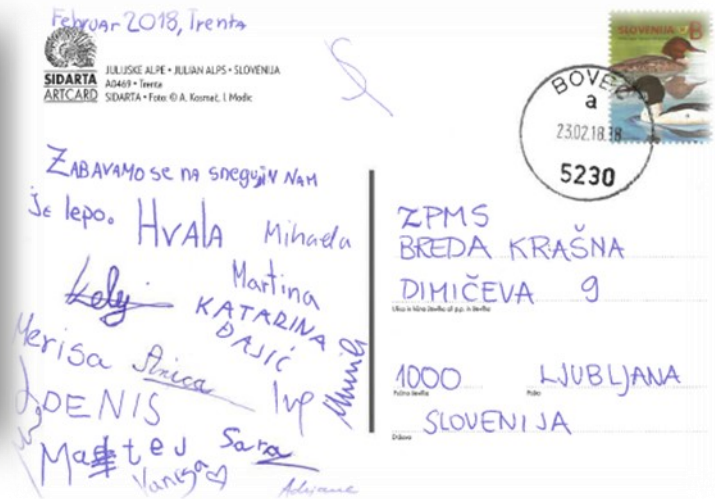 Februar 2018, Trenta
SIDARTA
ARTCARD
JULIJSKE ALPE • JULIAN ALPS • SLOVENIJA
A0469 • Trenta
SIDARTA • Foto: © A. Kosmač, I. Modic
SLOVENIJA B
BOVEC
a
23.02.18
5230
ZABAVAMO SE NA SNEGU, IN NAM
JE lepo.
HVALA
Mihaela
Martina
KATARINA
DAJIĆ
Merisa
Anica
DENIS
Matej
Sara
Vanesa
ZPMS
BREDA KRAŠNA
DIMIČEVA 9
Ulica in hišna številka ali p.p. in številka
1000 LJUBLJANA
Poštna številka Pošta
SLOVENIJA
Država